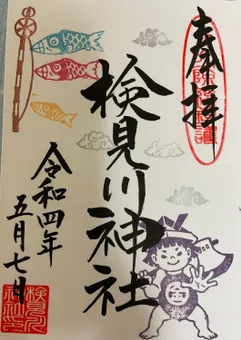 奉拝
検見川神社
令和四年
五月七日
検見川
神社
金